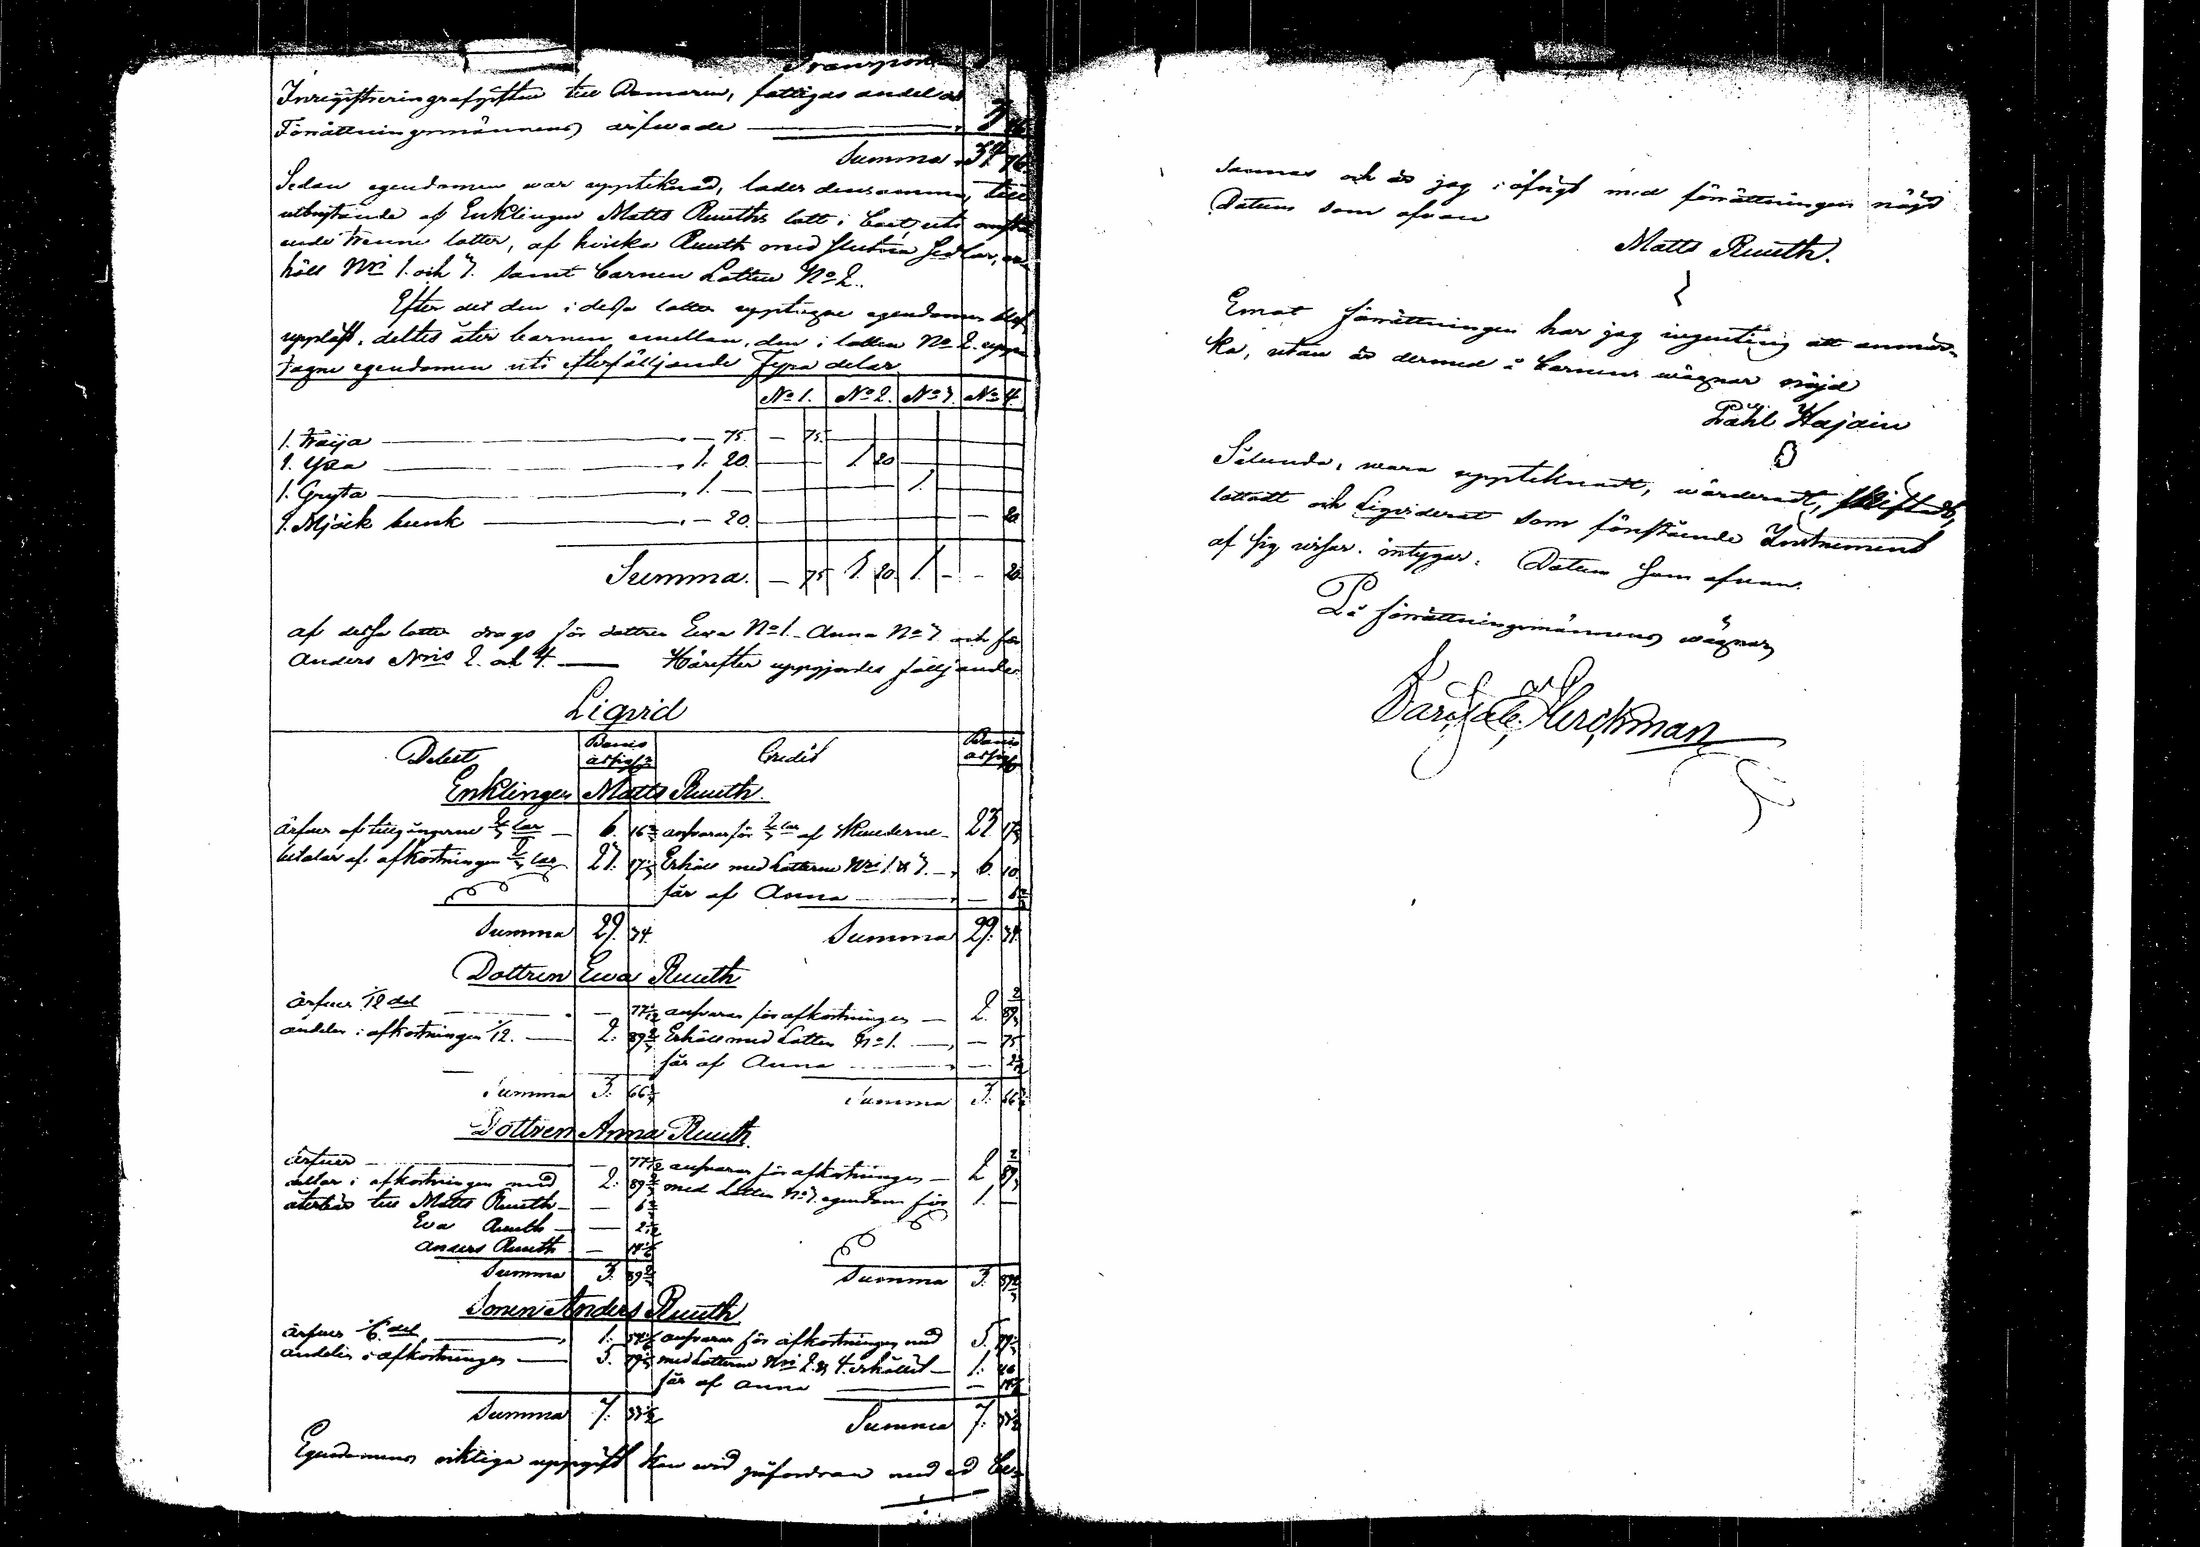 Transport
Inregistreringsafgiften till Domaren, fattigas andel och
Förrättningsmännens arfwode
Summa 34 76
Sedan egendomen war uppteknad, lades densamma, till
utbrytande af Enklingen Matts Ruuths lott i boet, uti
trenne lotter, af hvilka Ruuth med slutna Sedlar, er-
höll Nris 1. och 3. samt barnen Lotten No 2.
Efter det den i dessa lotter upptagne egendomen blef
uppläst, deltes åter barnen emellan, den i lotten No 2. upp-
tagne egendomen uti efterfölljande fyra delar
No 1. No 2. No 3. No 4.
1. Tröija 75. 75.
1. Yxa 1. 20. 1. 20
1. Gryta 1. 1.
1. Mjölk bunk 20. 20
Summa. 75 1. 20. 1. 20
af dessa lotter drogs för dottren Ewa No 1. Anna No 3 och för
Anders Nris 2. och 4. Härefter uppgjordes fölljande
Liqvid
Debet Credit
Enklingen Matts Ruuth.
ärfver af tillgångarne 2/3 lar 6. 16 2/3 ansvarar för 2/3 lar af skulderne 23 17 1/3
betalar af afkortningen 2/3 lar 23. 17 1/3 Erhöll med Lotterne Nris 1. & 3. 6. 10
får af Anna 6 2/3
Summa 29. 34. Summa 29. 34.
Dottren Ewa Ruuth
ärfver 1/12 del 77 1/12 ansvarar för afkortningen 2. 89 2/3
andelen i afkortningen 1/12. 2. 89 2/3 Erhöll med Lotten No 1. 75
får af Anna 2 1/12
Summa 3. 66 3/4 Summa 3. 66 3/4
Dottren Anna Ruuth.
ärfver 77 1/12 ansvarar för afkortningen 2 89 2/3
deltar i afkortningen med 2. 89 2/3 med Lotten No 3. egendom för 1.
återbär till Matts Ruuth 6 2/3
Ewa Ruuth 2 1/12
Anders Ruuth 14 1/6
Summa 3. 89 2/3 Summa 3. 89 2/3
Sonen Anders Ruuth
ärfver 1/6 del 1. 54 1/6 ansvarar för afkortningen med 5. 79 1/3
andelen i afkortningen 5. 79 1/3 med Lotterne Nris 2. & 4. erhållit 1. 40
får af Anna 14 1/6
Summa 7. 33 1/2 Summa 7. 33 1/2
Egendomens riktiga uppgift kan wid påfordran med ed be-
sannas och är jag i öfrigt med förrättningen nöjd
Datum som ofvan
Matts Ruuth.
Emot förrättningen har jag ingenting att anmär-
ka, utan är dermed å barnens wägnar nöjd
Påhl Hajain
Sålunda, wara uppteknadt, wärderadt, skiftadt,
lottadt och Liqviderat som förestående Instrument
af sig wisar. intygar. Datum som ofvan.
På förrättningsmännens wägnar
Herckman